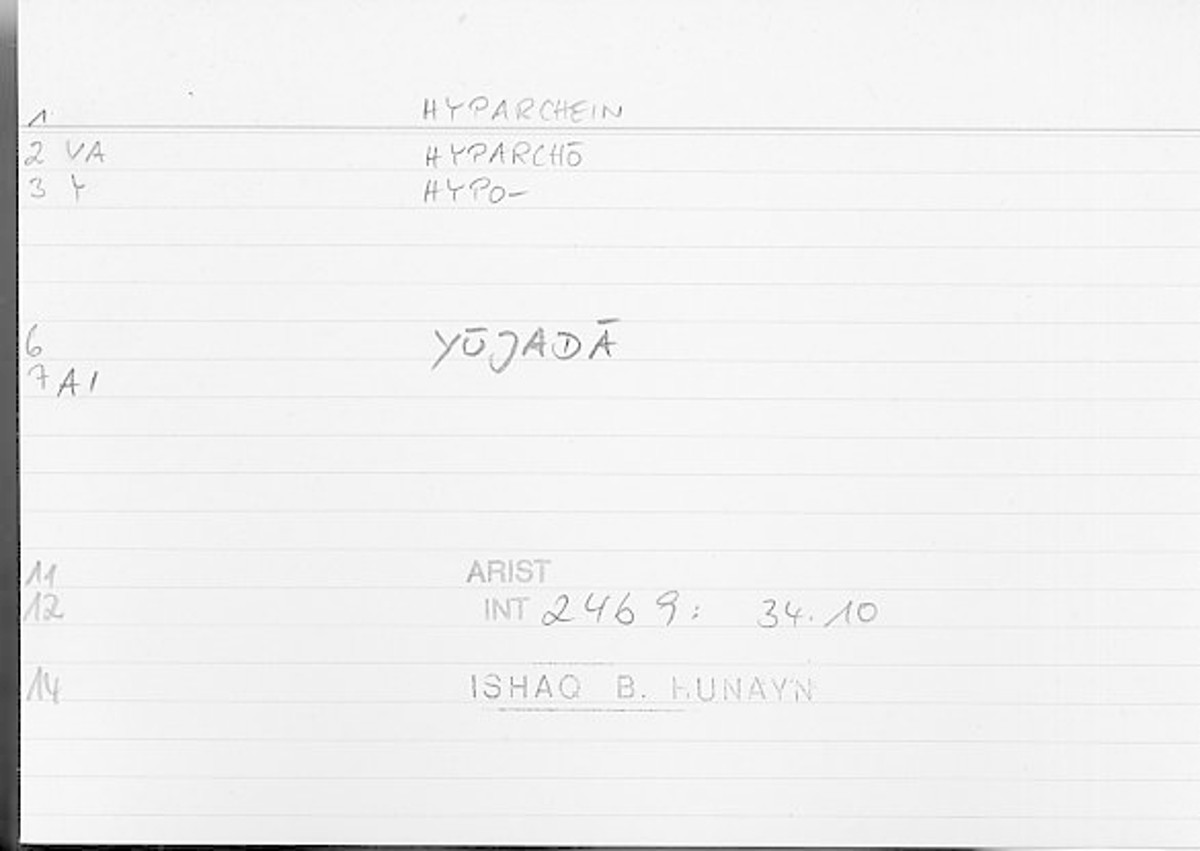 1 HYPARCHEIN
2 VA HYPARCHŌ
3 Y HYPO-
6 YŪJADĀ
7 A1
11 ARIST
12 INT 2469: 34.10
14 ISHAQ B. HUNAYN